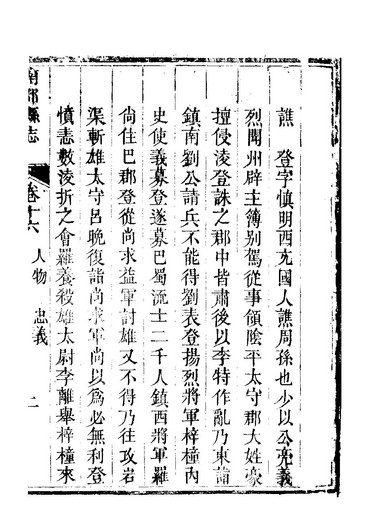 譙　登字慎明西充國人譙周孫也少以公亮義
烈聞州辟主簿别駕從事領陰平太守郡大姓豪
擅侵淩登誅之郡中皆肅後以李特作亂乃東詣
鎮南劉公請兵不能得劉表登揚烈將軍梓潼内
史使義募登遂募巴蜀流士二千人鎮西將軍羅
尚住巴郡登從尚求益軍討雄又不得乃往攻宕
渠斬雄太守呂晚復詣尚求軍尚以爲必無利登
憤恚數淩折之會羅羕殺雄太尉李離舉梓橦來
南部縣志
卷十六
人物　忠義
二